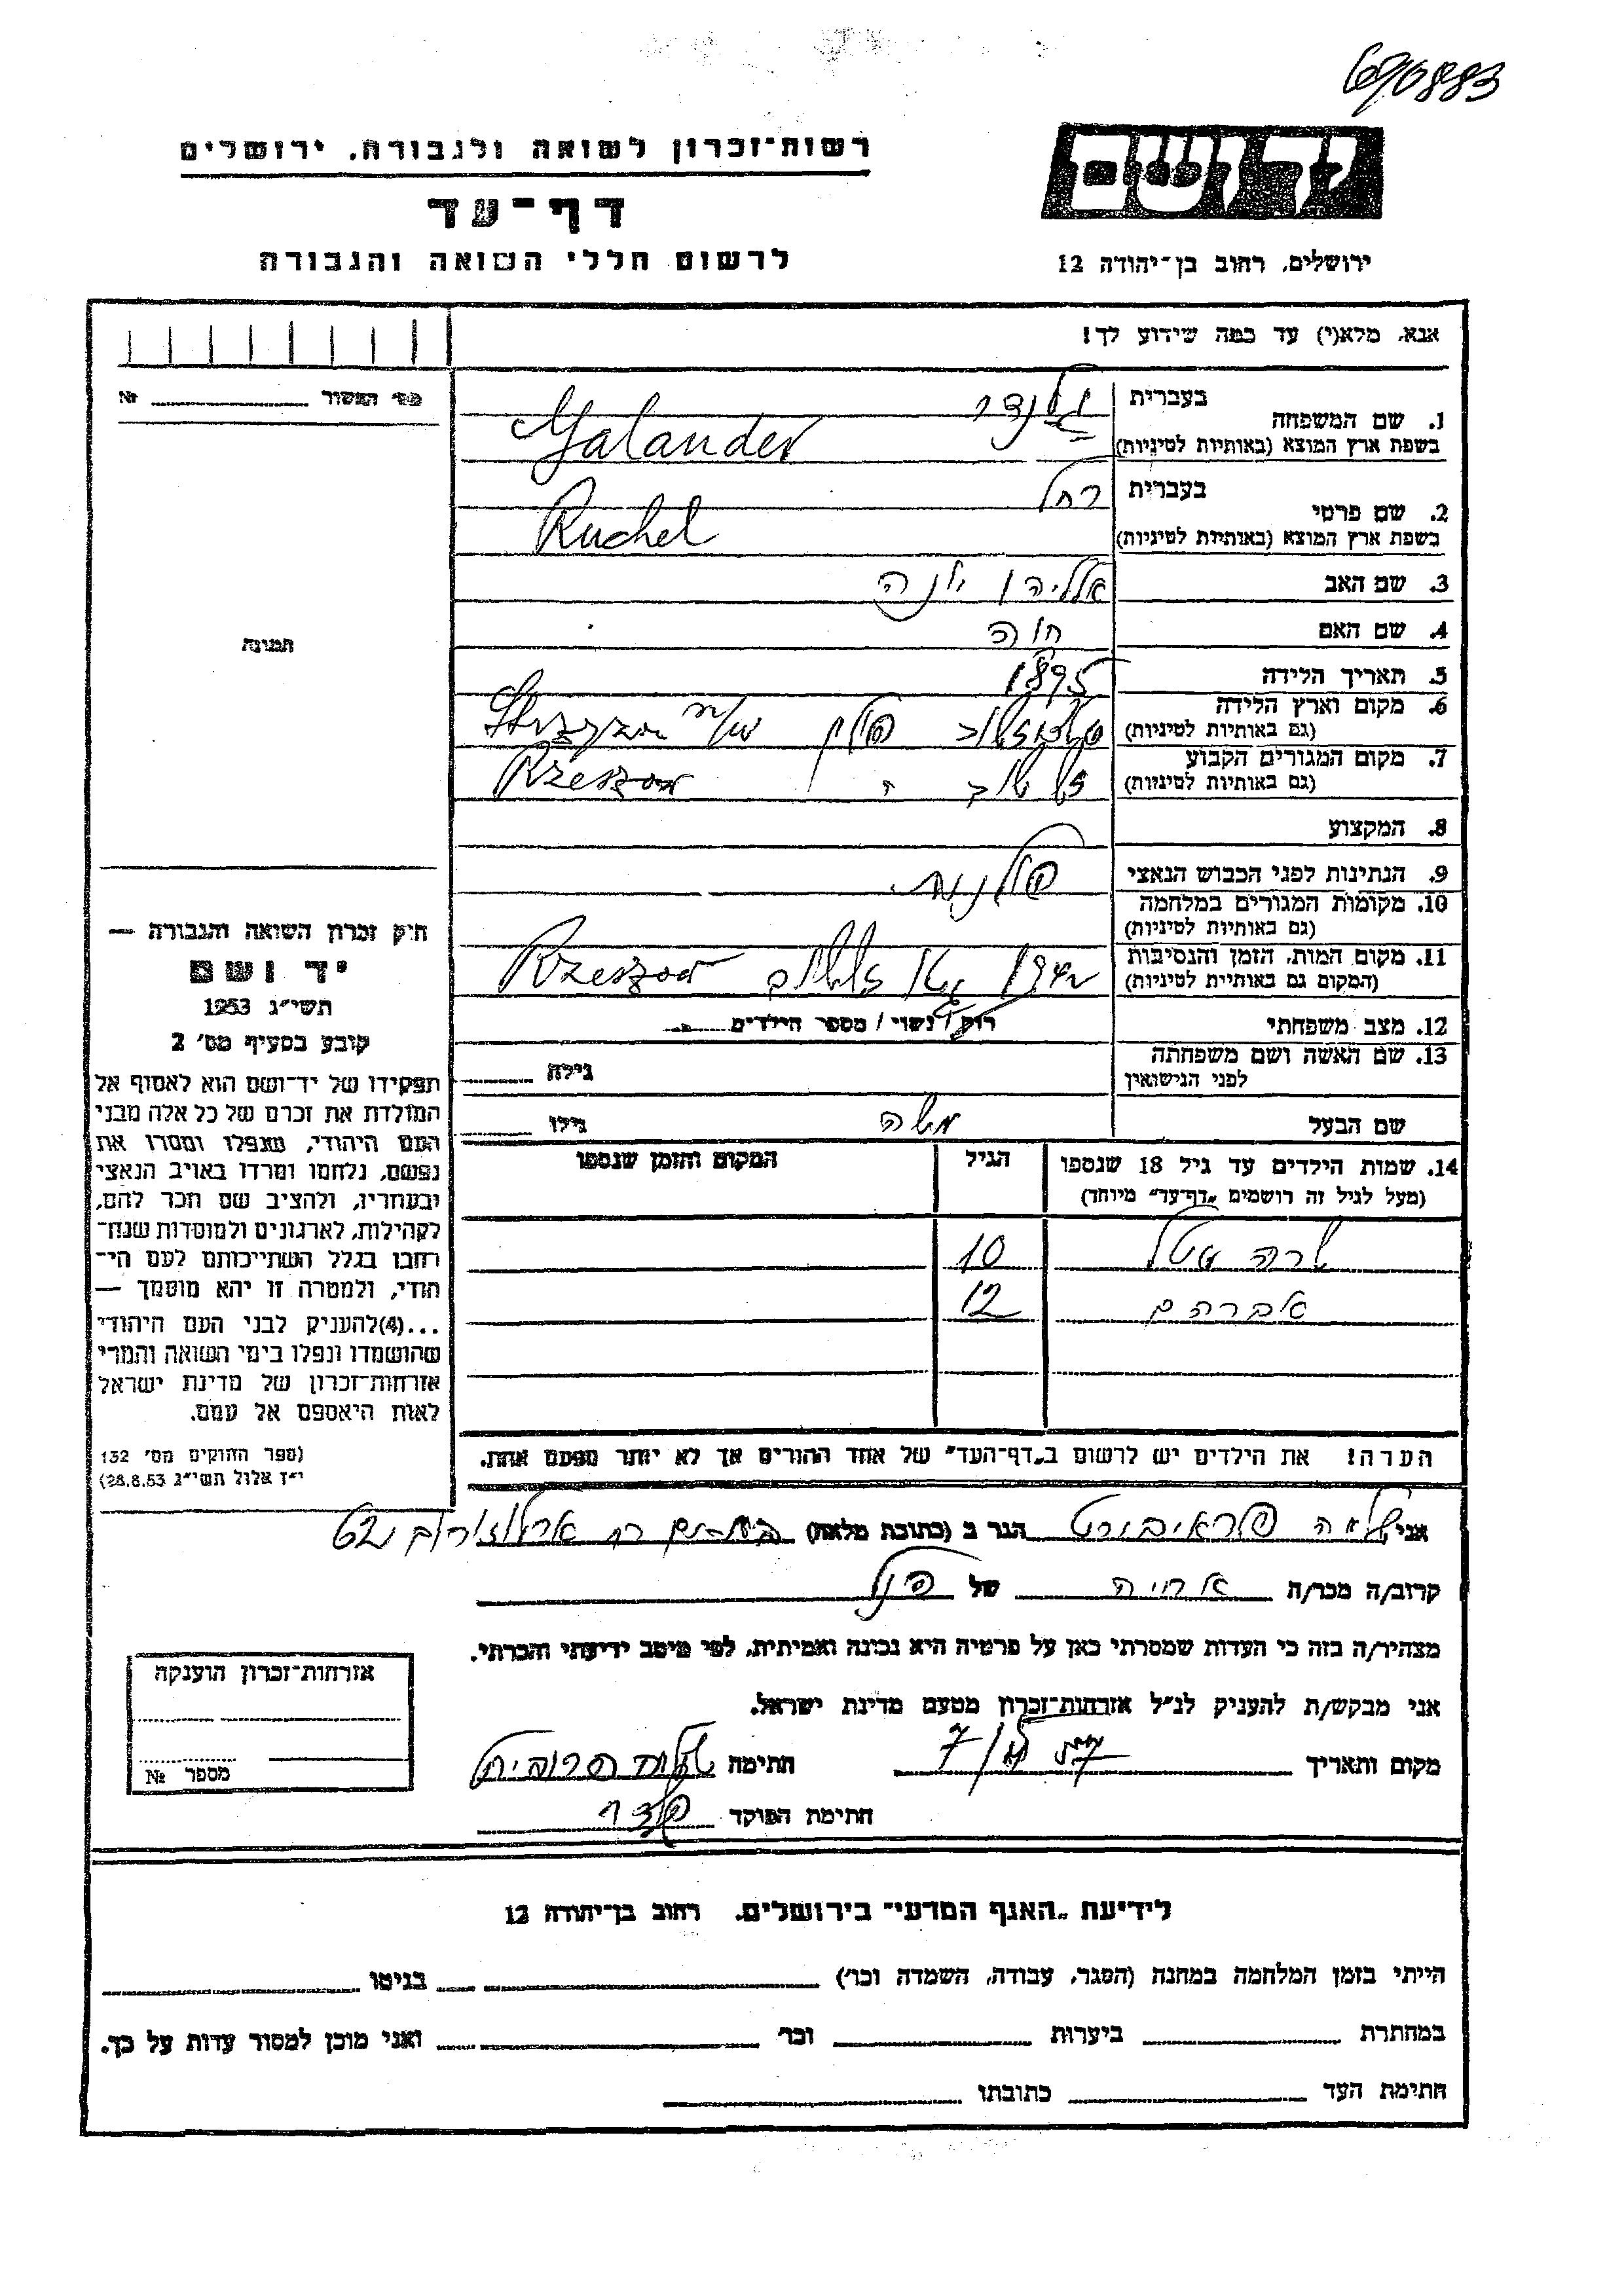 690883
רשות־זכרון לשואה ולגבורה, ירושלים
יד ושם
דף־עד
לרשום חללי השואה והגבורה
ירושלים, רחוב בן־יהודה 12
אנא, מלא(י) עד כמה שידוע לך!
מס׳ המשור № 
1. שם המשפחה בעברית גלנדר
בשפת ארץ המוצא (באותיות לטיניות) Galander
2. שם פרטי בעברית רחל
בשפת ארץ המוצא (באותיות לטיניות) Ruchel
3. שם האב אליהו יונה
4. שם האם חוה
תמונה
5. תאריך הלידה 1895
6. מקום וארץ הלידה פולין
(גם באותיות לטיניות)
7. מקום המגורים הקבוע Rzeszow
(גם באותיות לטיניות)
8. המקצוע
9. הנתינות לפני הכבוש הנאצי פולנית
10. מקומות המגורים במלחמה
(גם באותיות לטיניות)
11. מקום המות, הזמן והנסיבות Rzeszow
(המקום גם באותיית לטיניות)
12. מצב משפחתי רוק / נשוי / מספר הילדים
13. שם האשה ושם משפחתה גילה
לפני הנישואין
שם הבעל משה גילו
14. שמות הילדים עד גיל 18 שנספו הגיל המקום והזמן שנספו
(מעל לגיל זה רושמים „דף־עד״ מיוחד)
שרה 10
אברהם 12
הערה! את הילדים יש לרשום ב„דף־העד״ של אחד ההורים אך לא יותר מפעם אחת.
חוק זכרון השואה והגבורה —
יד ושם
תשי״ג 1953
קובע בסעיף מס׳ 2
תפקידו של יד־ושם הוא לאסוף אל
המולדת את זכרם של כל אלה מבני
העם היהודי, שנפלו ומסרו את
נפשם, נלחמו ומרדו באויב הנאצי
ובעוזריו, ולהציב שם וזכר להם,
לקהילות, לארגונים ולמוסדות שנח־
רבו בגלל השתייכותם לעם הי־
הודי, ולמטרה זו יהא מוסמך —
...(4)להעניק לבני העם היהודי
שהושמדו ונפלו בימי השואה והמרי
אזרחות־זכרון של מדינת ישראל
לאות היאספם אל עמם.
(ספר החוקים מס׳ 132
י״ז אלול תשי״ג 28.8.53)
אני הגר ב (כתובת מלאה)
קרוב/ה מכר/ה של
מצהיר/ה בזה כי העדות שמסרתי כאן על פרטיה היא נכונה ואמיתית, לפי מיטב ידיעתי והכרתי.
אני מבקש/ת להעניק לנ״ל אזרחות־זכרון מטעם מדינת ישראל.
מקום ותאריך חתימה
חתימת הפוקד
אזרחות־זכרון הוענקה
מספר №
לידיעת „האגף המדעי״ בירושלים, רחוב בן־יהודה 12
הייתי בזמן המלחמה במחנה (הסגר, עבודה, השמדה וכו׳) בגיטו
במחתרת ביערות וכו׳ ואני מוכן למסור עדות על כך.
חתימת העד כתובתו